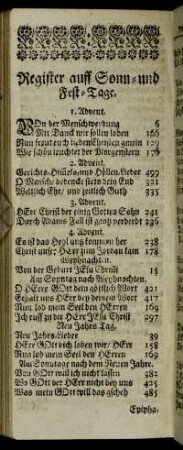 Register auff Sonn- und
Fest-Tage.
1. Advent.
VOn der Menschwerdung 6
Mit Danck wir sollen loben 166
Nun freut euch lieben Christen gemein 129
Wie schön leuchtet der Morgenstern 176
2. Advent.
Gerichts-Hülffs- und Höllen-Lieder 493
O Mensch bedencke stets dein End 321
Weltlich Ehr und zeitlich Guth 335
3. Advent.
HErr Christ der einig Gottes Sohn 241
Durch Adams Fall ist gantz verderbt 236
4. Advent.
Es ist das Heyl uns kommen her 238
Christ unser HErr zum Jordan kam 178
Weyhnachten.
Von der Geburt JEsu Christi 13
Am Sonntag nach Weyhnachten.
O HErre GOtt dein göttlich Wort 421
Erhalt uns HErr bey deinem Wort 417
Nun lob mein Seel den HErren 169
Ich ruff zu dir HErr JEsu Christ 297
Neu Jahrs Tag.
Neu Jahrs-Lieder 39
HErr GOtt dich loben wir/ HErr 158
Nun lob mein Seel den HErren 169
Am Sonntage nach dem Neuen Jahre.
Von GOtt will ich nicht lassen 382
Wo GOtt der HErr nicht bey uns 425
Was mein GOtt will das gscheh 485
Epipha-